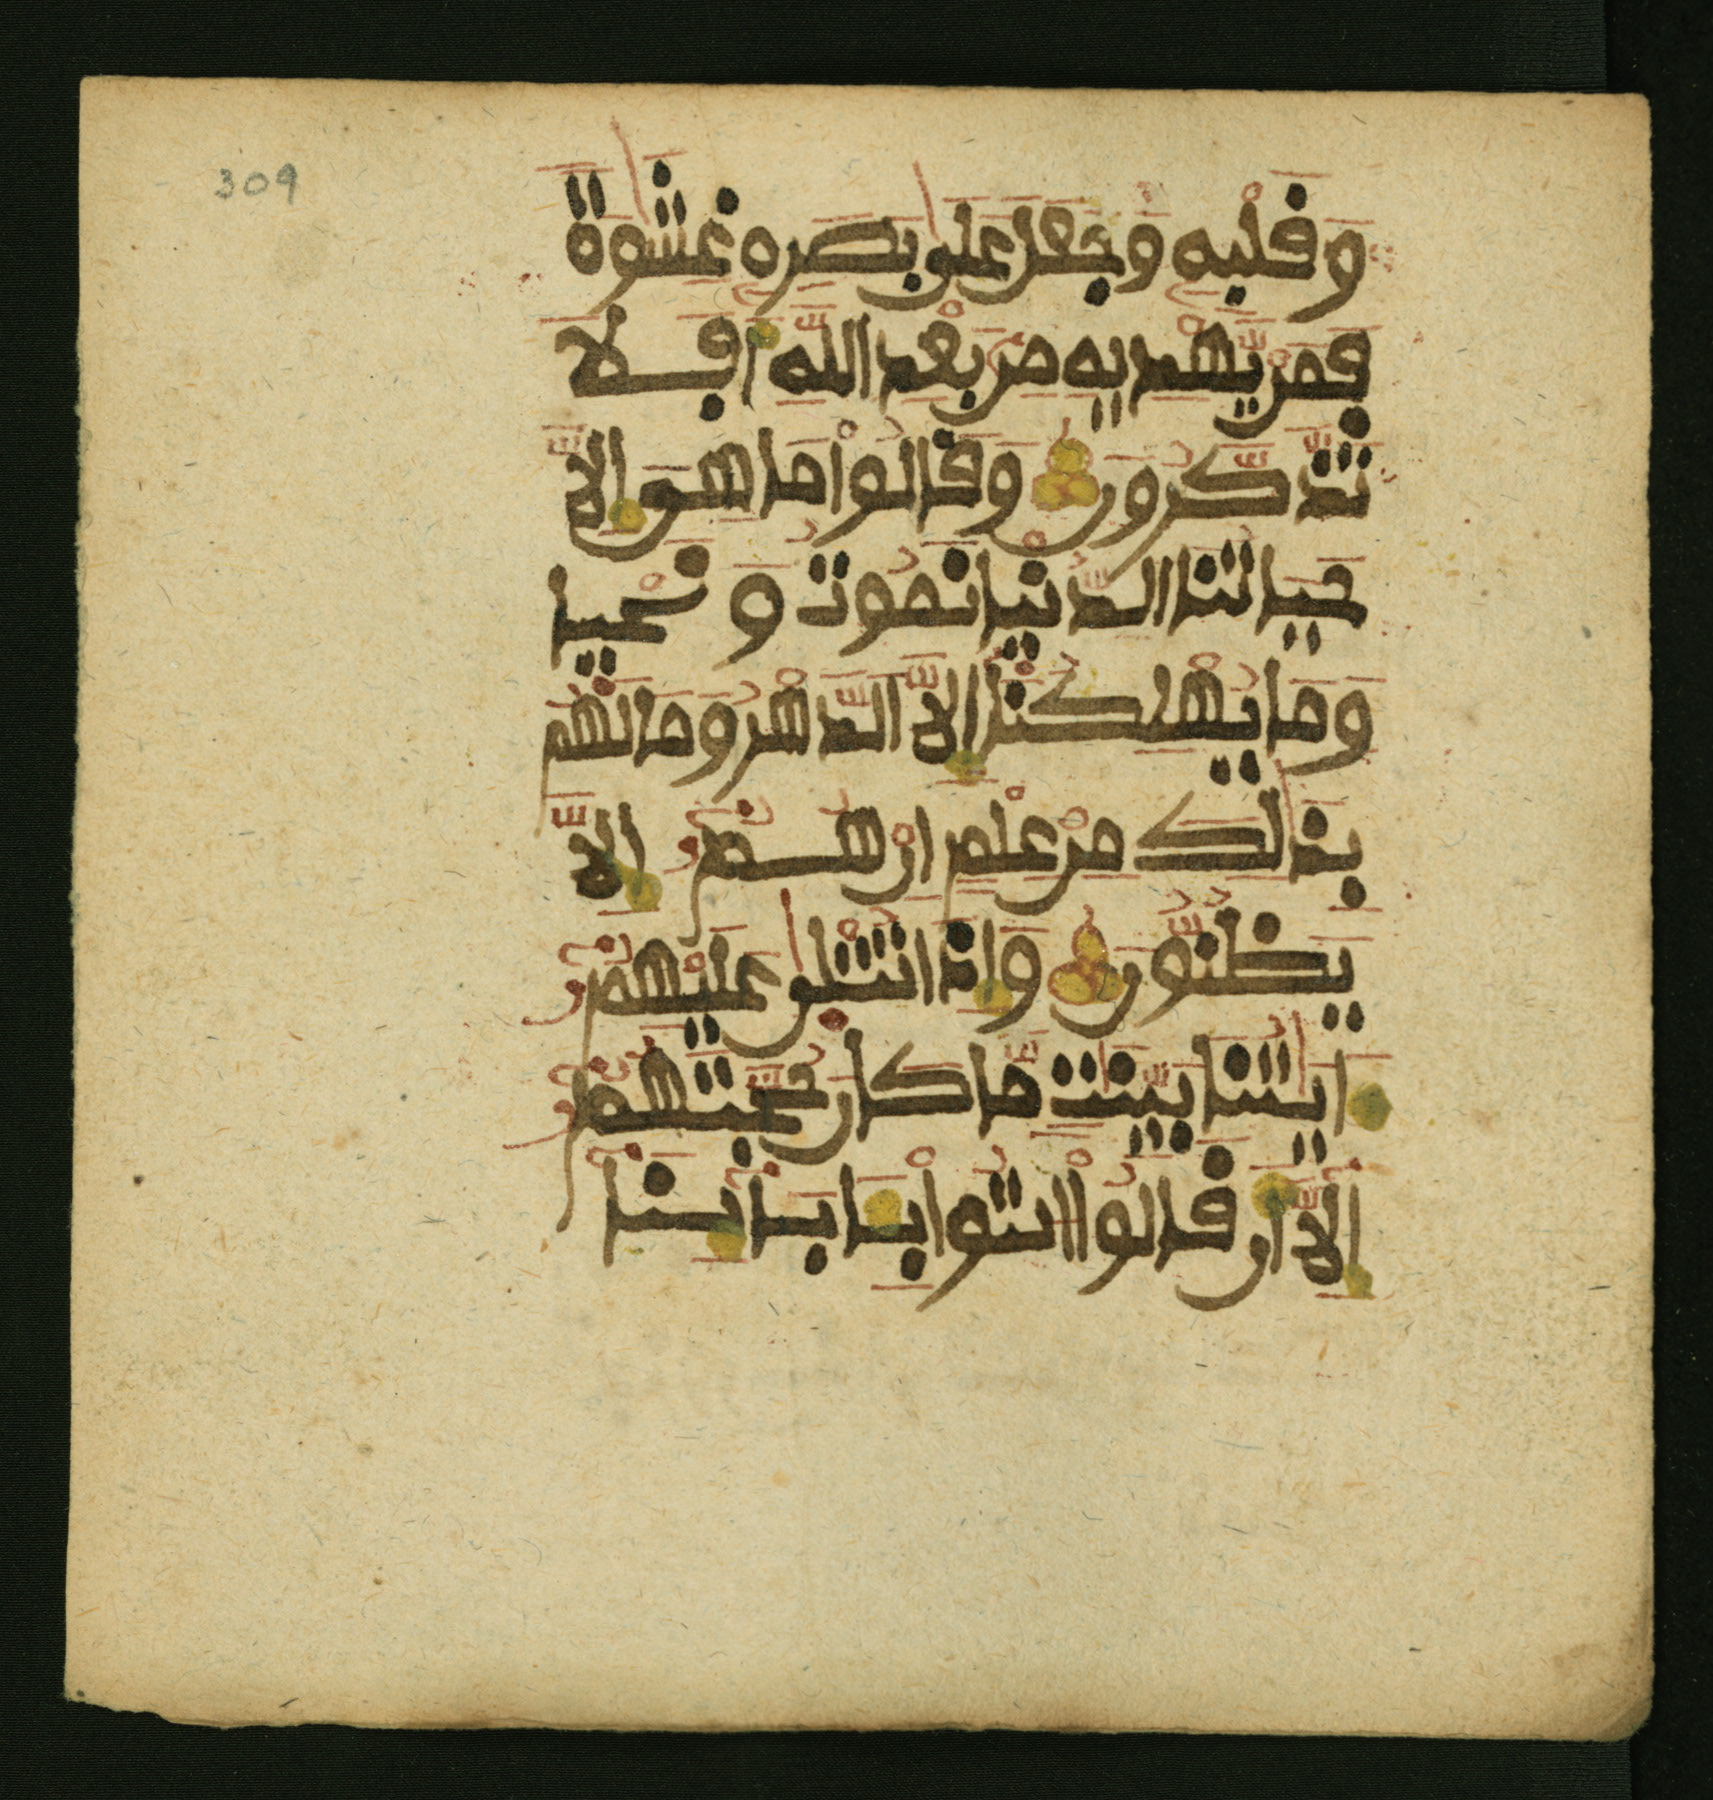 309
وَقَلْبِهِ وَجَعَلَ عَلَىٰ بَصَرِهِ غِشَٰوَةً
فَمَنْ يَّهْدِيهِ مِنۢ بَعْدِ اللَّهِ أَفَلَا
تَذَّكَّرُونَ وَقَالُوا۟ مَا هِىَ إِلَّا
حَيَاتُنَا الدُّنْيَا نَمُوتُ وَنَحْيَا
وَمَا يُهْلِكُنَا إِلَّا الدَّهْرُ وَمَا لَهُم
بِذَٰلِكَ مِنْ عِلْمٍ إِنْ هُمُۥ إِلَّا
يَظُنُّونَ وَإِذَا تُتْلَىٰ عَلَيْهِمُۥ
ءَايَٰتُنَا بَيِّنَٰتٍ مَّا كَانَ حُجَّتَهُمُۥ
إِلَّا أَن قَالُوا۟ ا۟ئْتُوا بِـَٔابَآئِنَا